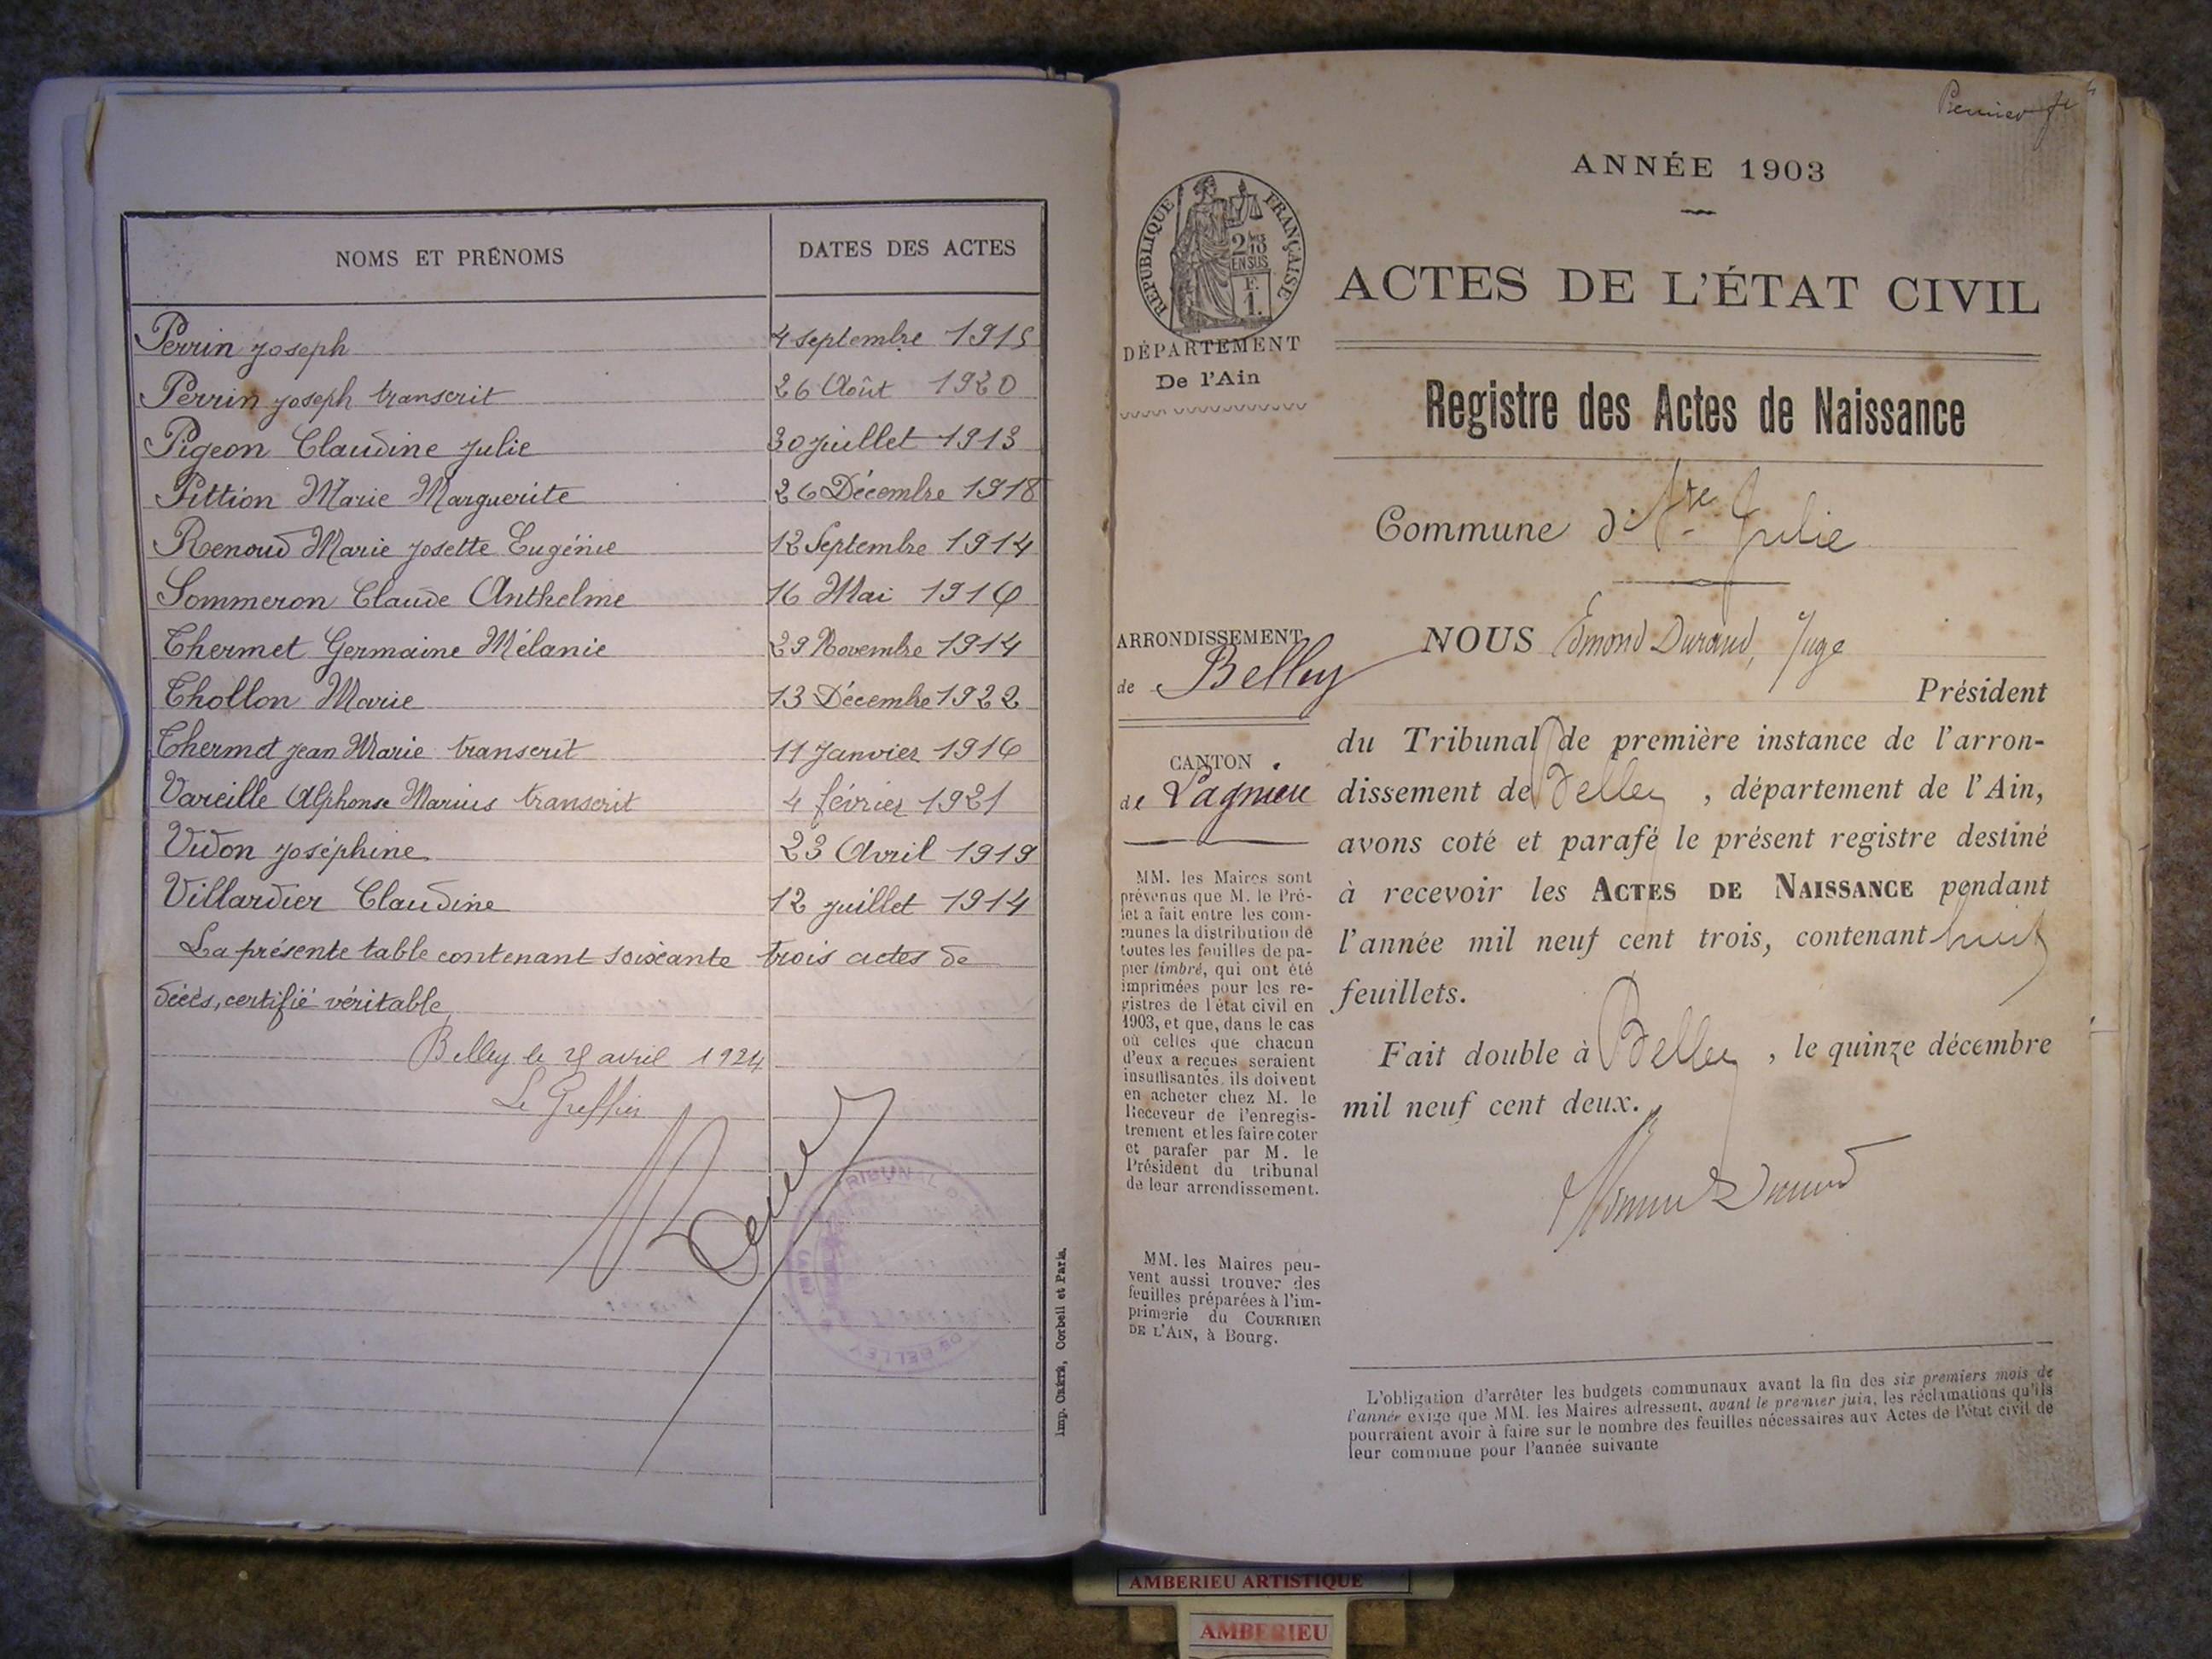 NOMS ET PRÉNOMS DATES DES ACTES
Perrin Joseph 4 septembre 1915
Perrin Joseph transcrit 26 Août 1920
Pigeon Claudine Julie 30 juillet 1913
Pittion Marie Marguerite 26 Décembre 1918
Renoud Marie Josette Eugénie 12 Septembre 1914
Sommeron Claude Anthelme 16 Mai 1916
Thermet Germaine Mélanie 29 Novembre 1914
Thollon Marie 13 Décembre 1922
Thermet Jean Marie transcrit 11 Janvier 1916
Vareille Alphonse Marius transcrit 4 février 1921
Vidon Joséphine 23 Avril 1919
Villardier Claudine 12 juillet 1914
La présente table contenant soixante trois actes de
décès, certifié véritable
Belley le avril 1924
Le Greffier
TRIBUNAL
DE BELLEY
Imp. Crété, Corbeil et Paris.
Premier
ANNÉE 1903
RÉPUBLIQUE FRANÇAISE
EN SUS
F.
1.
ACTES DE L'ÉTAT CIVIL
DÉPARTEMENT
De l'Ain
Registre des Actes de Naissance
Commune d Ste Julie
ARRONDISSEMENT
de Belley
CANTON
de Lagnieu
MM. les Maires sont
prévenus que M. le Pré-
fet a fait entre les com-
munes la distribution de
toutes les feuilles de pa-
pier timbré, qui ont été
imprimées pour les re-
gistres de l'état civil en
1903, et que, dans le cas
où celles que chacun
d'eux a reçues seraient
insuffisantes, ils doivent
en acheter chez M. le
Receveur de l'enregis-
trement et les faire coter
et parafer par M. le
Président du tribunal
de leur arrondissement.
MM. les Maires peu-
vent aussi trouver des
feuilles préparées à l'im-
primerie du COURRIER
DE L'AIN, à Bourg.
NOUS Edmond Durand, Juge
Président
du Tribunal de première instance de l'arron-
dissement de Belley, département de l'Ain,
avons coté et parafé le présent registre destiné
à recevoir les ACTES DE NAISSANCE pendant
l'année mil neuf cent trois, contenant huit
feuillets.
Fait double à Belley, le quinze décembre
mil neuf cent deux.
Edmond Durand
L'obligation d'arrêter les budgets communaux avant la fin des six premiers mois de
l'année exige que MM. les Maires adressent, avant le premier juin, les réclamations qu'ils
pourraient avoir à faire sur le nombre des feuilles nécessaires aux Actes de l'état civil de
leur commune pour l'année suivante
AMBERIEU ARTISTIQUE
AMBERIEU